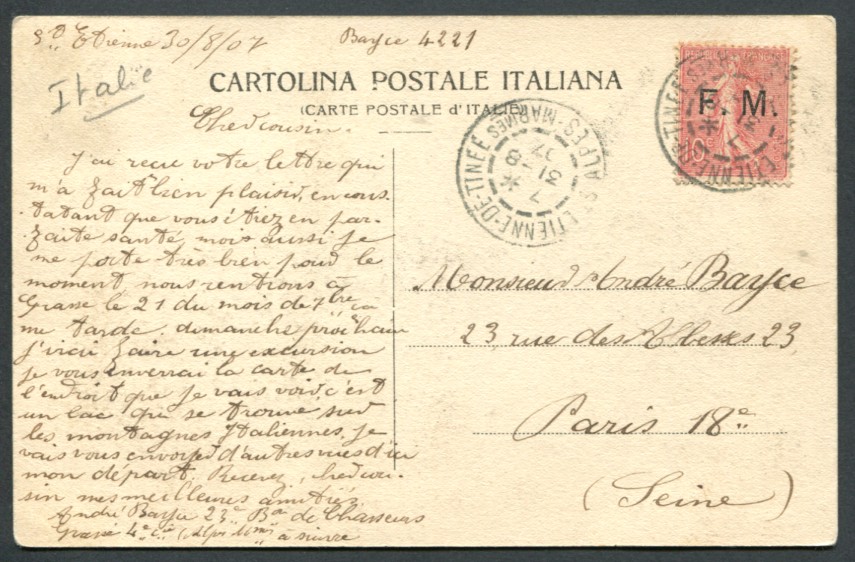 St Etienne 30/8/07
Bayce 4221
Italie
CARTOLINA POSTALE ITALIANA
(CARTE POSTALE d'ITALIE)
Cher cousin.
J'ai reçu votre lettre qui
m'a fait bien plaisir, en cons
-tatant que vous étiez en par-
-faite santé, mois aussi je
me porte très bien pour le
moment, nous rentrions à
Grasse le 21 du mois de 7bre ça
me tarde. dimanche prochain
j'irai faire une excursion
je vous enverrai la carte de
l'endroit que je vais voir, c'est
un lac qui se trouve sur
les montagnes Italiennes, je
vais vous envoyer d'autres vues d'ici
mon départ. Recevez, cher cou-
sin mes meilleures amitiés.
André Bayce 23e Bon de Chasseurs
Grasse 4e Cie (Alpes Mmes) à suivre
F. M.
10c
ST ETIENNE-DE-TINÉE
ALPES-MARIMES
7
31 -8
07
Monsieur André Bayce
23, rue des 23,
Paris 18e
(Seine)